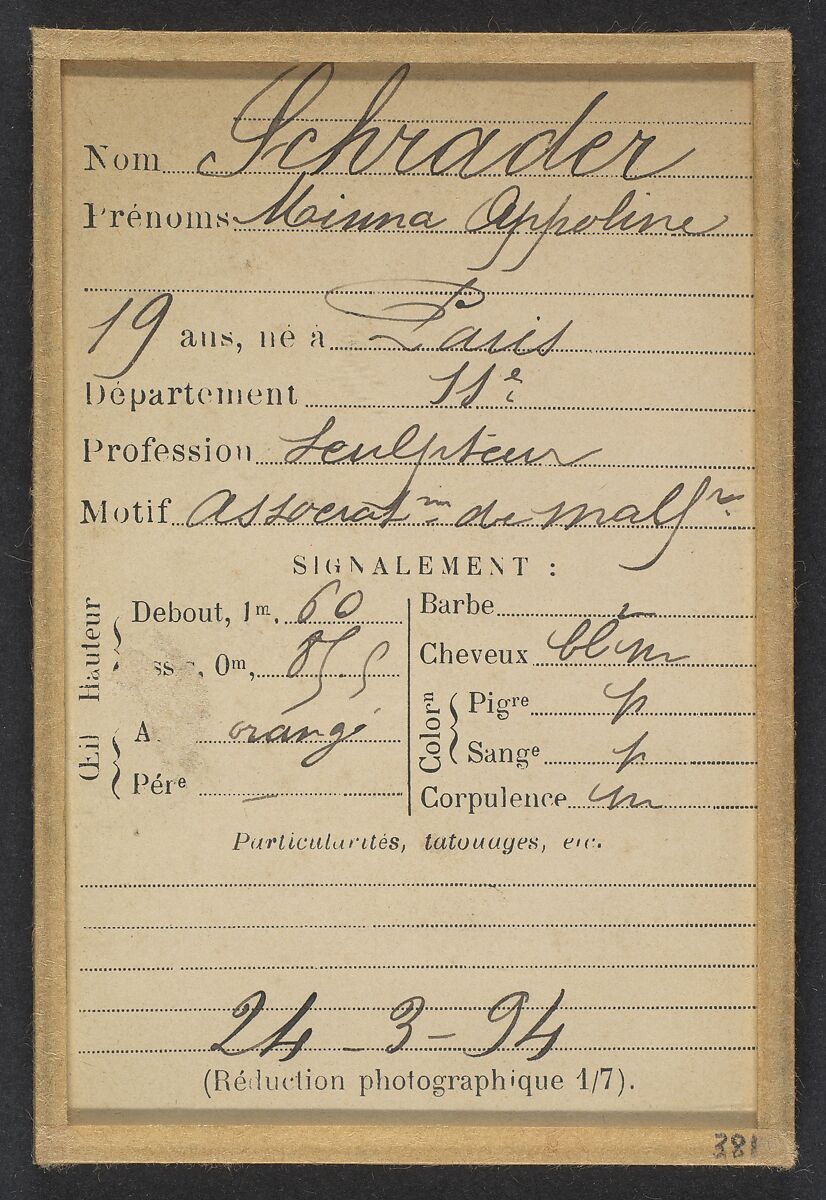 Nom Schrader
Prénoms Minna Appoline
19 ans, né à Paris
Département 11e
Profession Sculpteur
Motif Associat on de malf rs
SIGNALEMENT :
Hauteur
Debout, 1m, 60
0m, 85,5
Œil
A orangé
Pére —
Barbe —
Cheveux bl m
Colorn
Pigre p
Sange p
Corpulence m
Particularités, tatouages, etc.
24 - 3 - 94
(Réduction photographique 1/7).
381